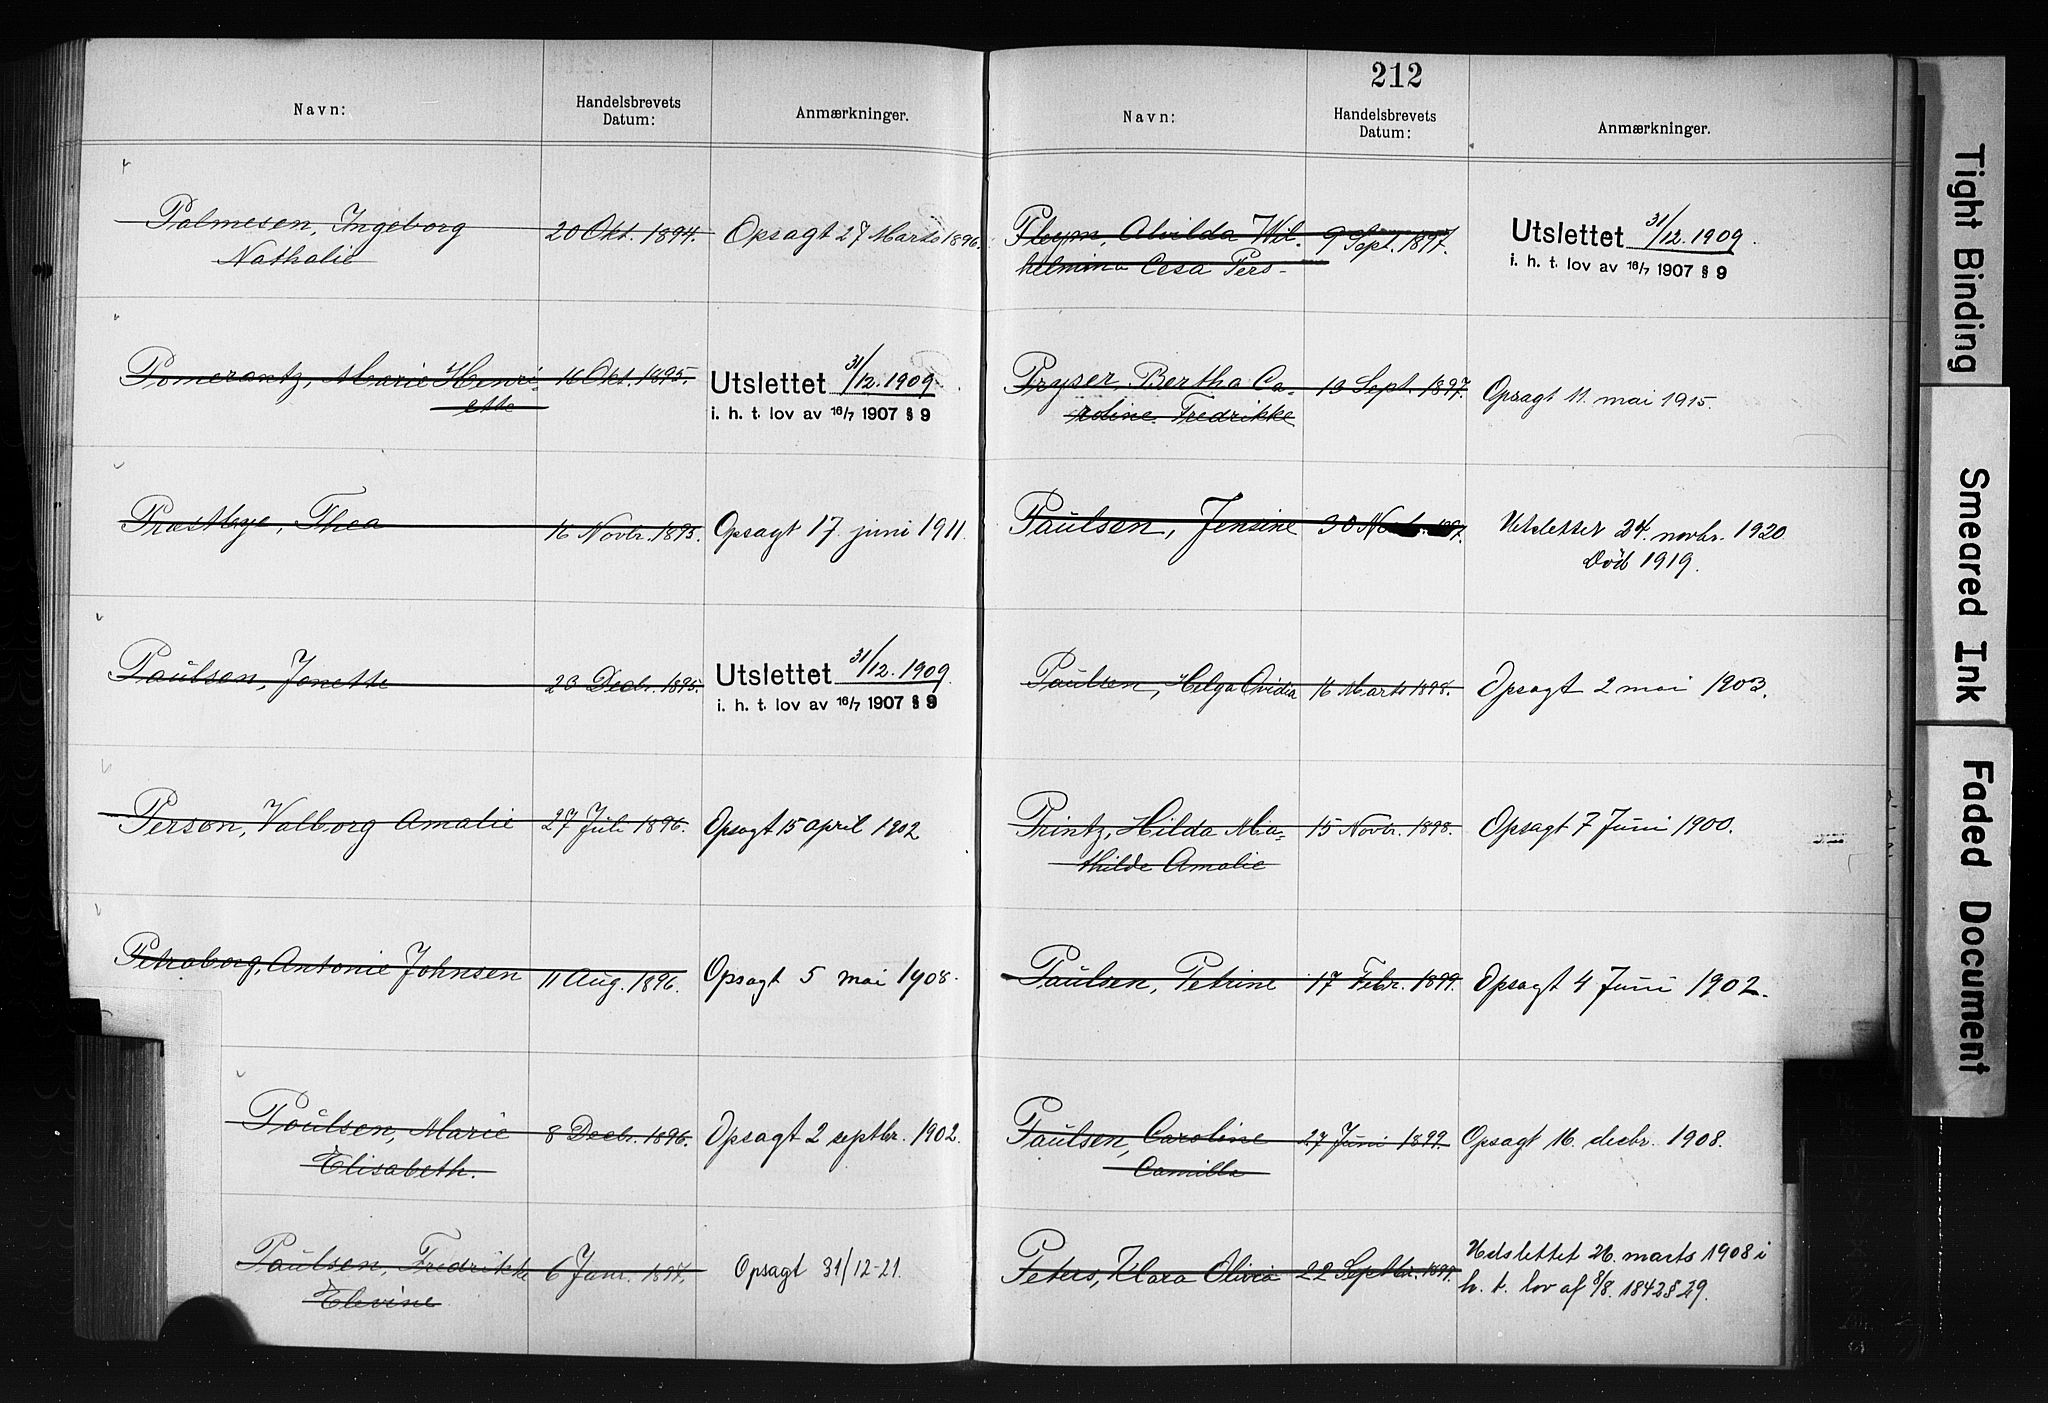 Navn:
Handelsbrevets
Datum:
Anmærkninger.
Palmesen, Ingeborg
Nathalie
20 Okt. 1894.
Opsagt 27 Marts 1896.
Pomerantz, Marie Henri-
ette
16 Okt. 1895.
Utslettet 31/12.1909.
i. h. t. lov av 16/7 1907 § 9
Præstbye, Thea
16 Novbr. 1895.
Opsagt 17. juni 1911.
Paulsen, Jonette
23 Decbr. 1895.
Utslettet 31/12.1909.
i. h. t. lov av 16/7 1907 § 9
Person, Valborg Amalie
27 Juli 1896.
Opsagt 15 april 1902
Petraborg, Antonie Johnsen
11 Aug. 1896.
Opsagt 5 mai 1908.
Poulsen, Marie
Elisabeth.
8 Decbr. 1896.
Opsagt 2 septbr. 1902.
Paulsen, Fredrikke
Elevine
6 Janr. 1897.
Opsagt 31/12-21.
212
Navn:
Handelsbrevets
Datum:
Anmærkninger.
Pleym, Alvilda Wil-
helmina Cesa Pers-
9 Sept. 1897.
Utslettet 31/12.1909.
i. h. t. lov av 16/7 1907 § 9
Pryser, Bertha Ca-
roline Fredrikke
13 Sept. 1897.
Opsagt 11. mai 1915.
Paulsen, Jensine
30
Utslettet 24. novbr. 1920
Död 1919.
Paulsen, Helga Ovidia
16 Marts 1898.
Opsagt 2 mai 1903.
Printz, Hilda Ma-
thilde Amalie
15 Novbr. 1898.
Opsagt 7 Juni 1900.
Paulsen, Petrine
17 Febr. 1899.
Opsagt 4 Juni 1902.
Paulsen, Caroline
Camilla
27 Juni 1899.
Opsagt 16. decbr. 1908.
Peters, Klara Olivia
22 Septbr. 1899.
Udslettet 26. marts 1908 i
h. t. lov af 8/8. 1842 § 29.
Tight Binding
Smeared Ink
Faded Document